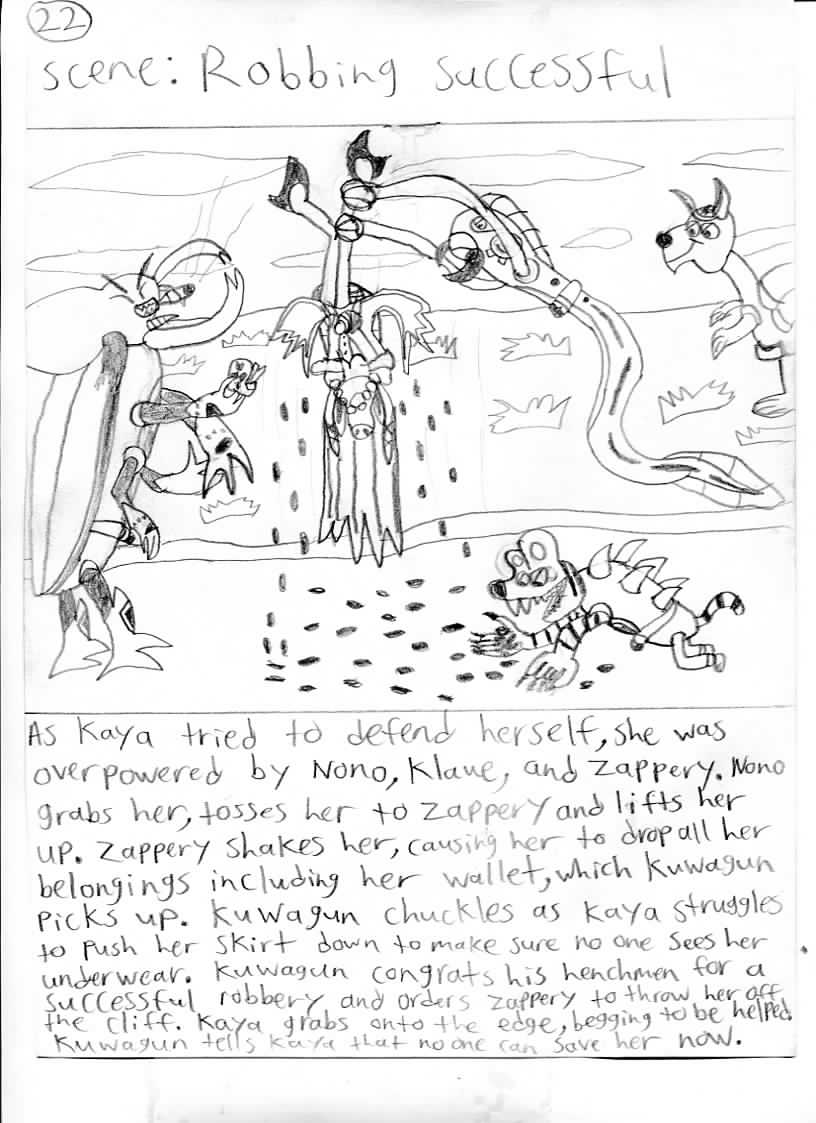 22
scene: Robbing successful
As Kaya tried to defend herself, she was
overpowered by Nono, Klaue, and Zappery. Nono
grabs her, tosses her to Zappery and lifts her
up. Zappery shakes her, causing her to drop all her
belongings including her wallet, which Kuwagun
picks up. Kuwagun chuckles as Kaya struggles
to push her skirt down to make sure no one sees her
underwear. Kuwagun congrats his henchmen for a
successful robbery and orders Zappery to throw her off
the cliff. Kaya grabs onto the edge, begging to be helped.
Kuwagun tells Kaya that no one can save her now.